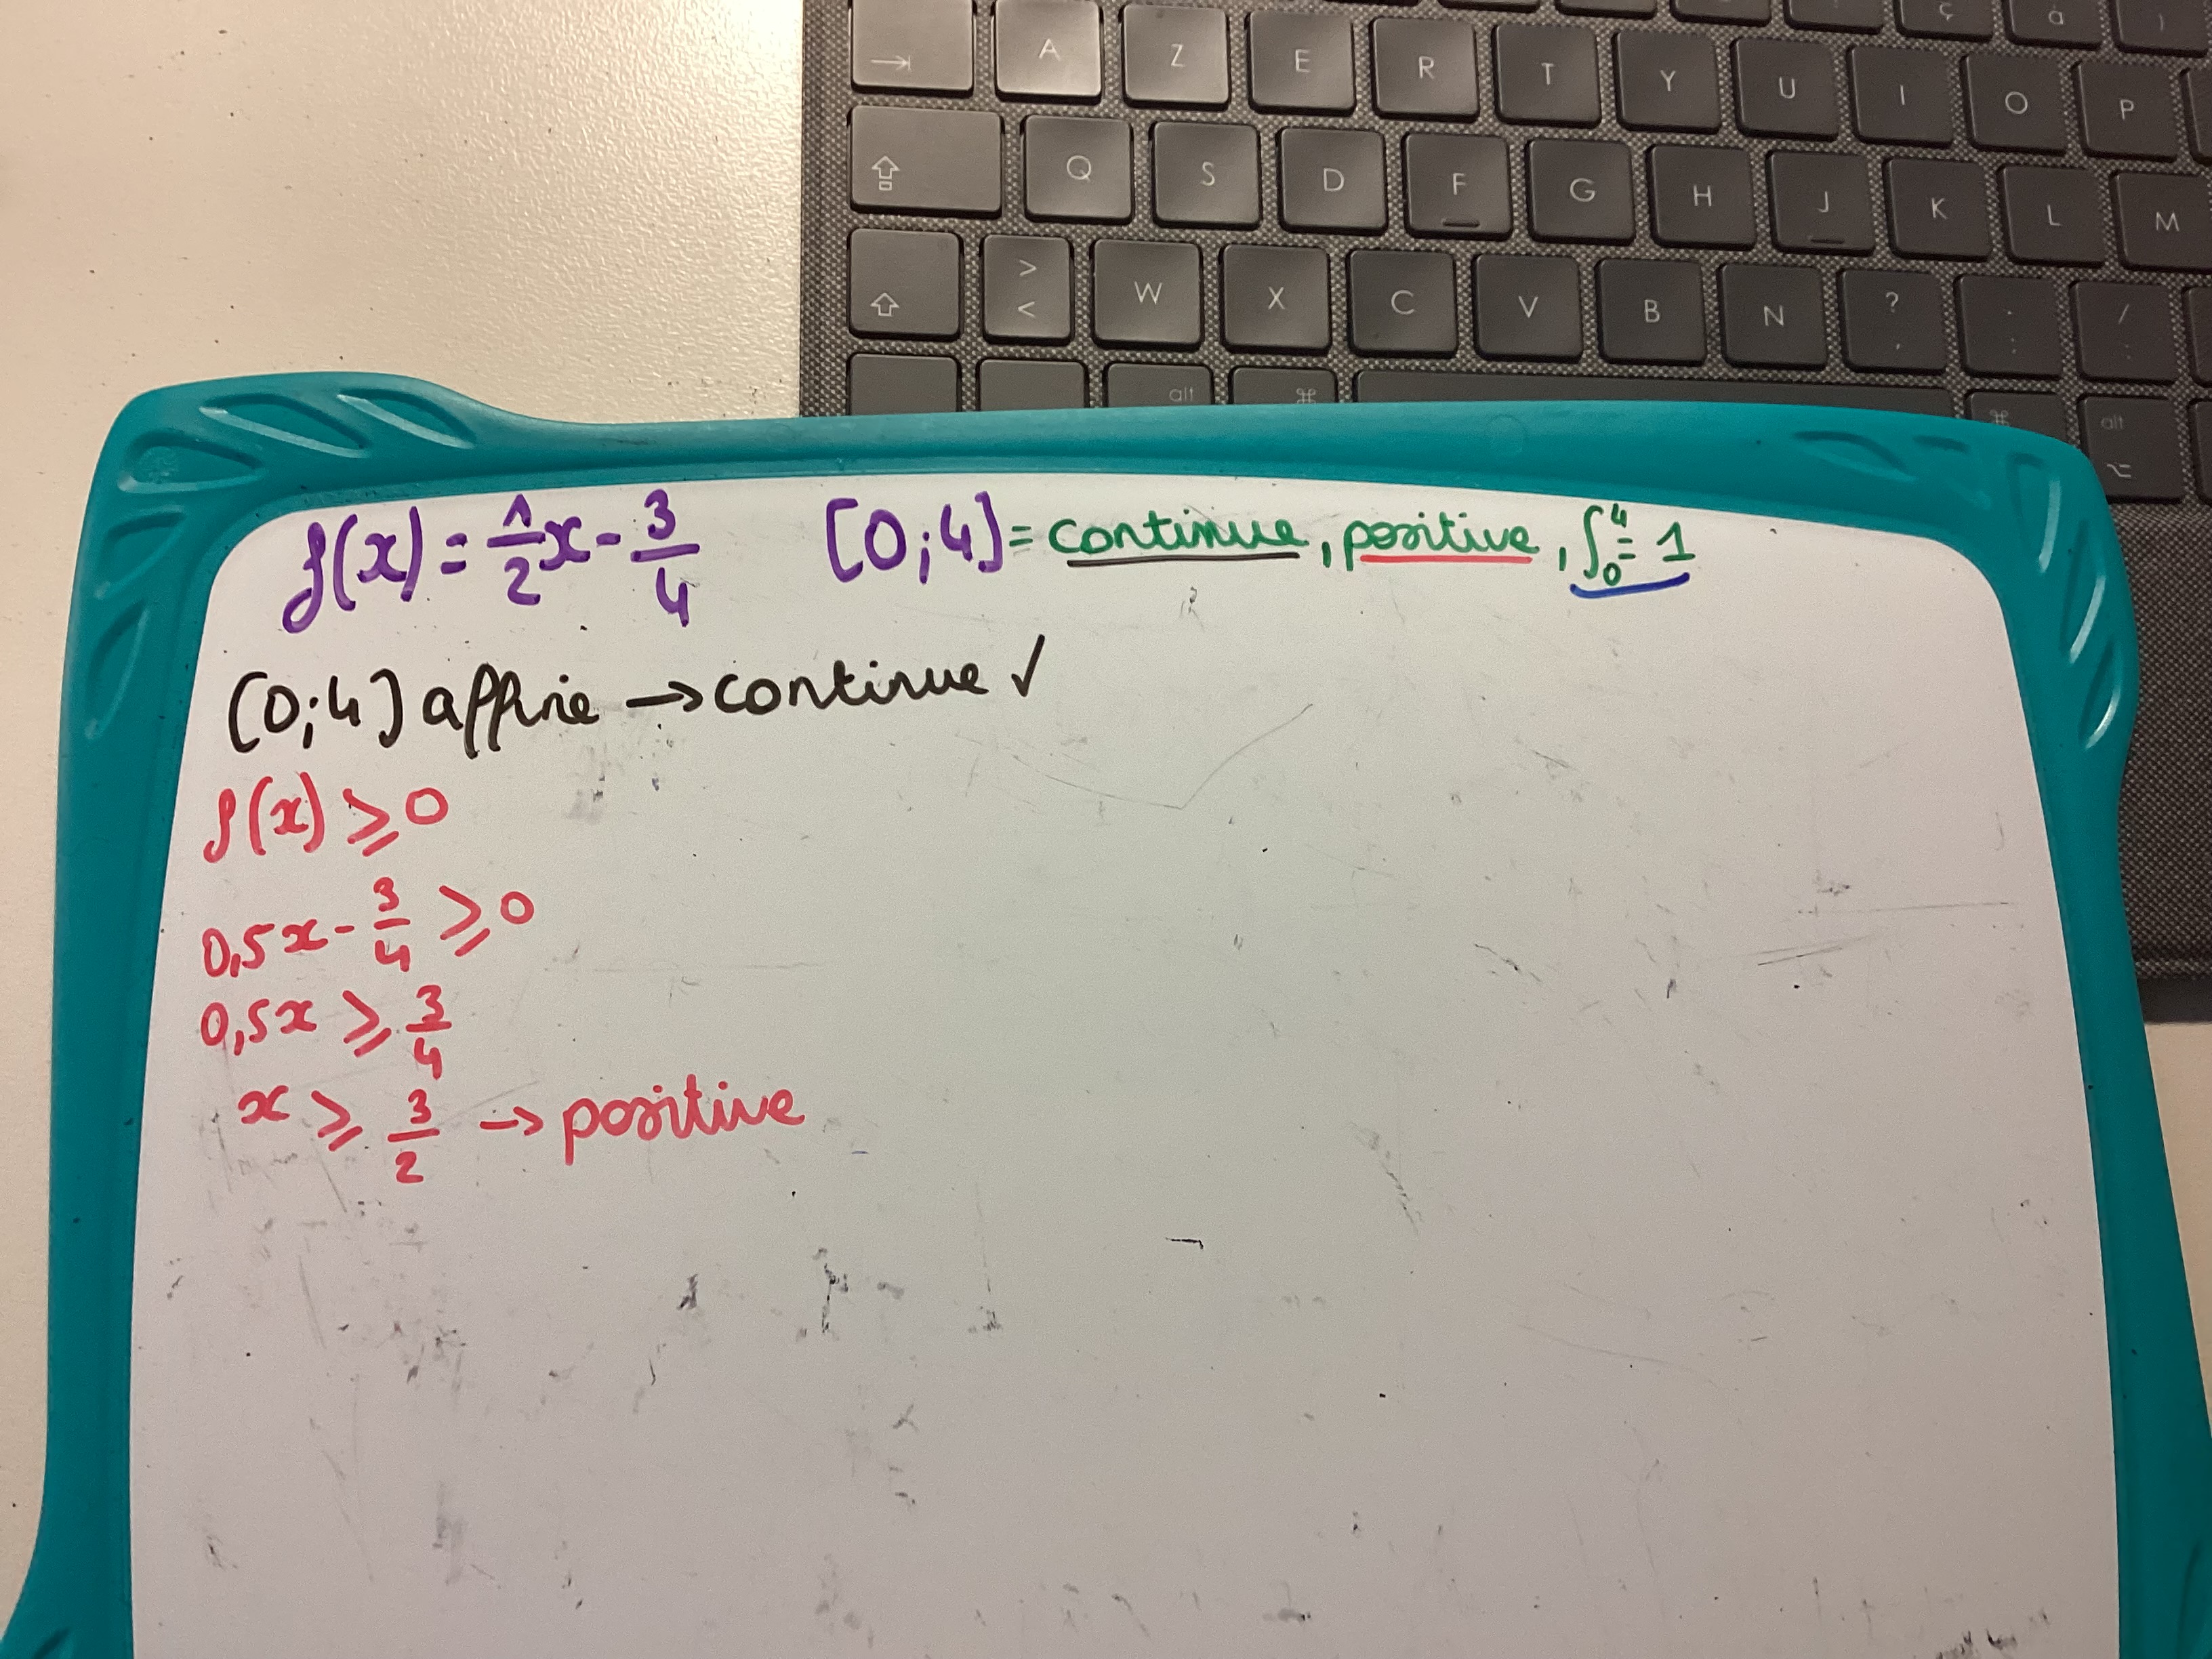 A Z E R T Y U I O P
Q S D F G H J K L M
> < W X C V B N ? , . ; / :
alt ⌘ ⌘ alt
f(x) = 1/2 x - 3/4 [0;4] = continue, positive, ∫₀⁴ = 1
[0;4] affine → continue ✓
f(x) ⩾ 0
0,5x - 3/4 ⩾ 0
0,5x ⩾ 3/4
x ⩾ 3/2 → positive